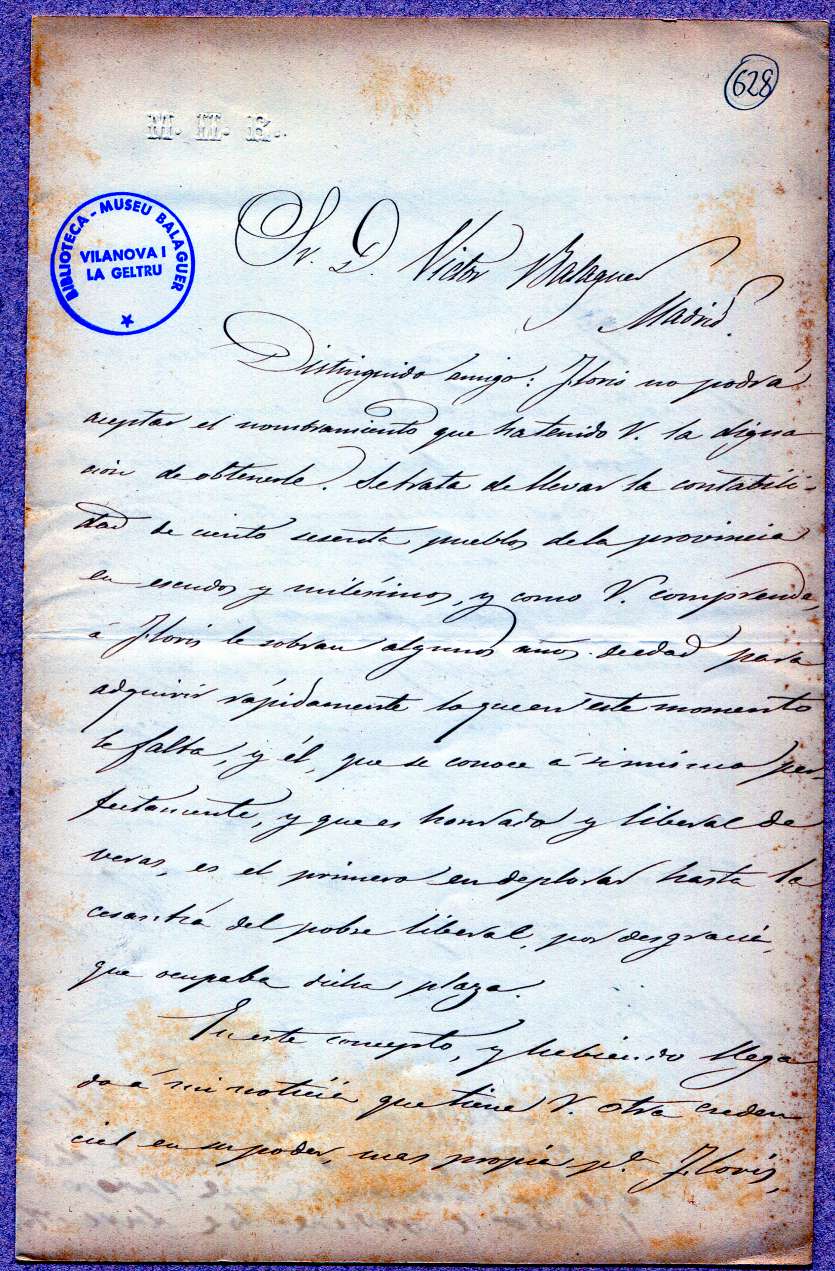 628
BIBLIOTECA - MUSEU BALAGUER
VILANOVA I
LA GELTRU
Sr. D. Victor Balaguer
Madrid.
Distinguido amigo: Floris no podrá
aceptar el nombramiento que ha tenido V. la digna
cion de obtenerle. Se trata de llevar la contabili-
dad de ciento sesenta pueblos de la provincia
en escudos y milésimos, y como V. comprende,
á Floris le sobran algunos años de edad para
adquirir rápidamente lo que en este momento
le falta, y él, que se conoce á si mismo per-
fectamente, y que es honrado y liberal de
veras, es el primero en deplorar hasta la
cesantía del pobre liberal, por desgracia,
que ocupaba dicha plaza.
En este concepto, y habiendo llega
do á mi noticia que tiene V. otra creden
cial en su poder, mas propia pª Floris,